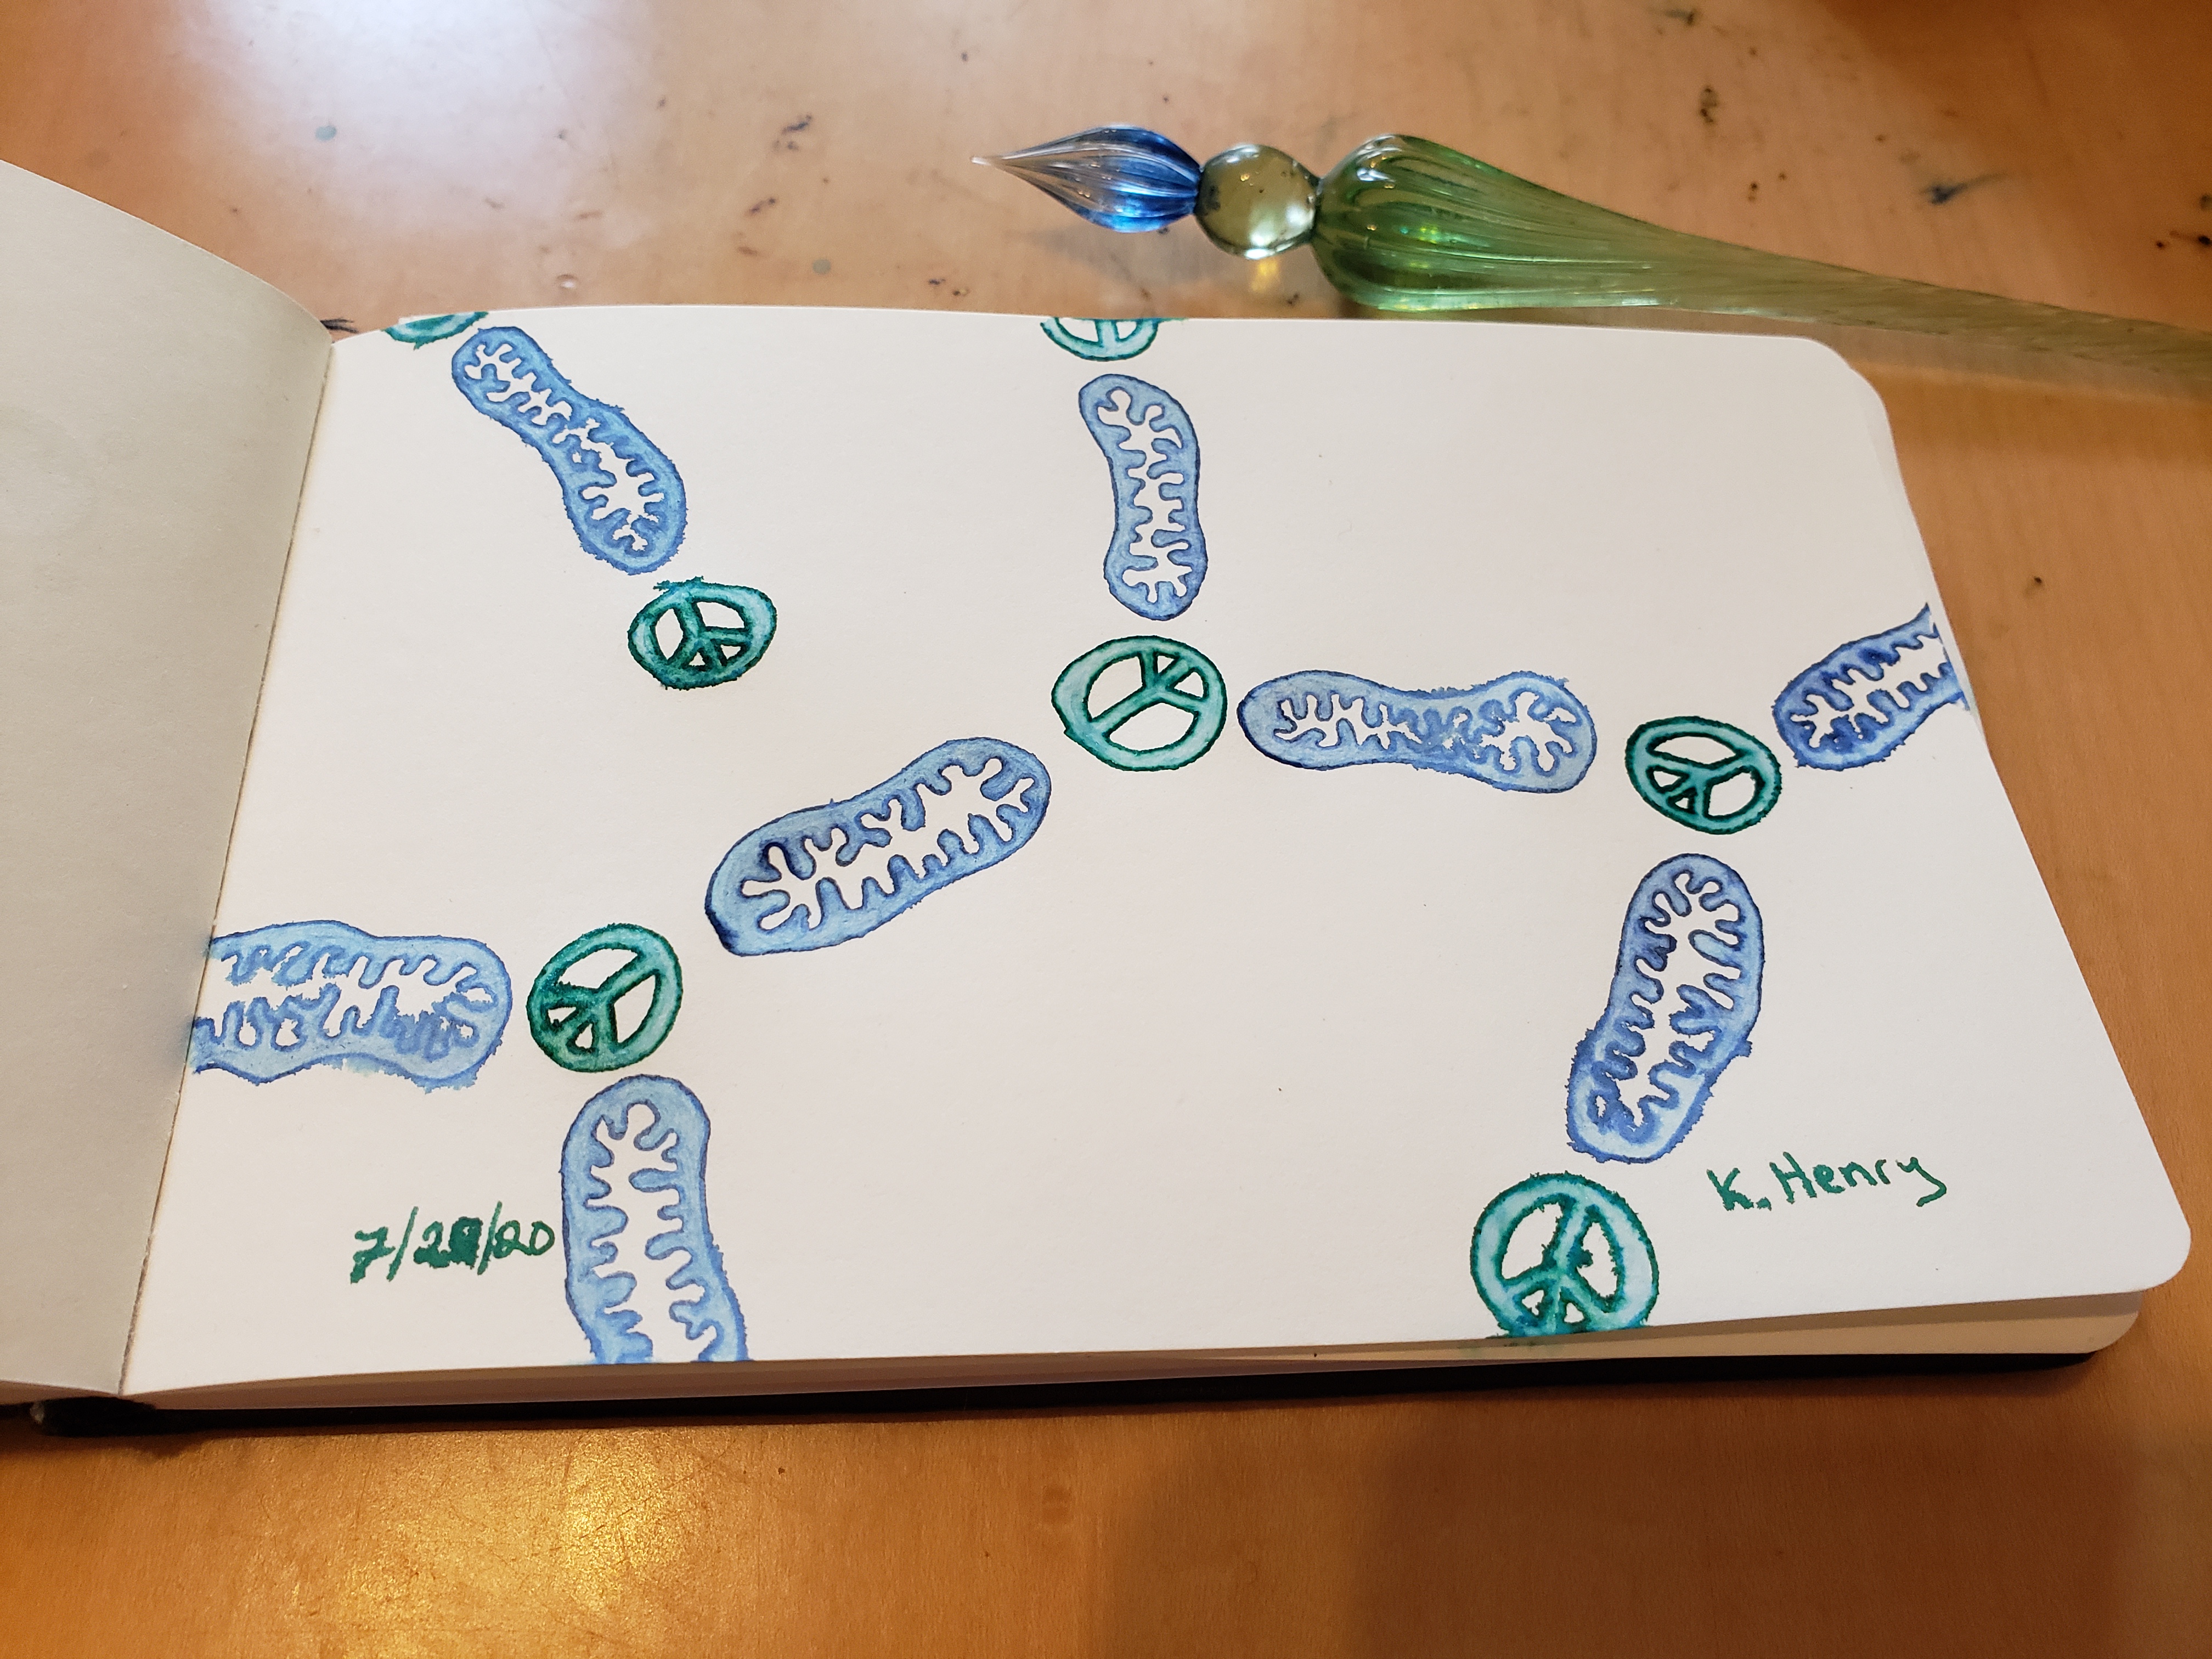 7/2█/20
K. Henry